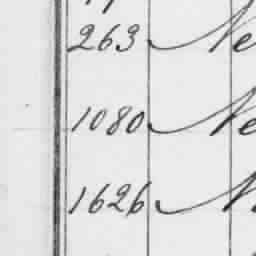 263 Ne
1080 Ne
1626 N